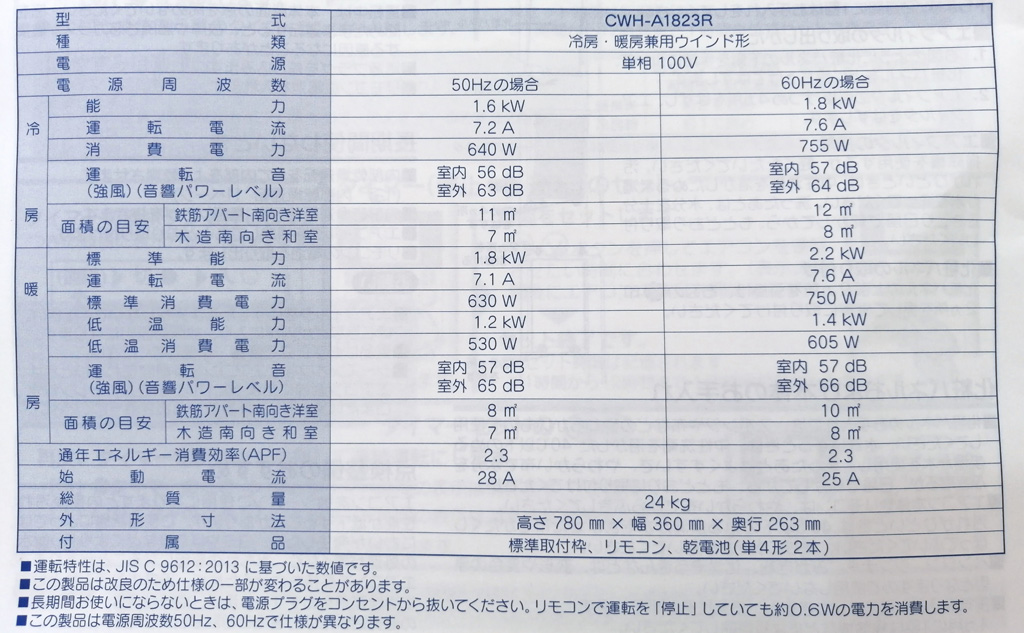 型式 CWH-A1823R
種類 冷房・暖房兼用ウインド形
電源 単相 100V
電源周波数 50Hzの場合 60Hzの場合
冷房
能力 1.6 kW 1.8 kW
運転電流 7.2 A 7.6 A
消費電力 640 W 755 W
運転音 室内 56 dB 室内 57 dB
(強風)(音響パワーレベル) 室外 63 dB 室外 64 dB
面積の目安
鉄筋アパート南向き洋室 11 ㎡ 12 ㎡
木造南向き和室 7 ㎡ 8 ㎡
暖房
標準能力 1.8 kW 2.2 kW
運転電流 7.1 A 7.6 A
標準消費電力 630 W 750 W
低温能力 1.2 kW 1.4 kW
低温消費電力 530 W 605 W
運転音 室内 57 dB 室内 57 dB
(強風)(音響パワーレベル) 室外 65 dB 室外 66 dB
面積の目安
鉄筋アパート南向き洋室 8 ㎡ 10 ㎡
木造南向き和室 7 ㎡ 8 ㎡
通年エネルギー消費効率(APF) 2.3 2.3
始動電流 28 A 25 A
総質量 24 kg
外形寸法 高さ 780 ㎜ × 幅 360 ㎜ × 奥行 263 ㎜
付属品 標準取付枠、リモコン、乾電池(単4形 2本)
■運転特性は、JIS C 9612:2013 に基づいた数値です。
■この製品は改良のため仕様の一部が変わることがあります。
■長期間お使いにならないときは、電源プラグをコンセントから抜いてください。リモコンで運転を「停止」していても約0.6Wの電力を消費します。
■この製品は電源周波数50Hz、60Hzで仕様が異なります。